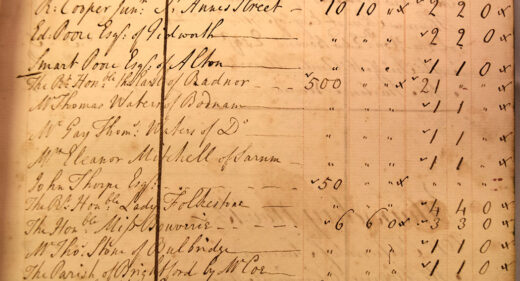 R. Cooper Junr. St. Annes Street — 10 10 " 2 2 0
Ed. Poore Esqr. of Tedworth " " " 2 2 0
Smart Poore Esqr. of Alton " " " 1 1 0
The Rt. Honble. the Earl of Radnor - 500 " " 21 " "
Mr. Thomas Waters of Bodnam " " " 1 1 "
Mr. Gay Thoms. Waters of Do. " " " 1 1 "
Mrs. Eleanor Mitchell of Sarum " " " 1 1 "
John Thorpe Esqr. - 50 " " " " "
The Rt. Honble. Lady Folkestone " " " 4 4 0
The Honble. Miss Bouverie - - - - 6 6 0 3 3 0
Mr. Thos. Stone of Bulbridge " " " 1 1 0
The Parish of Brightford by Mr. Coe " " " 1 1 0